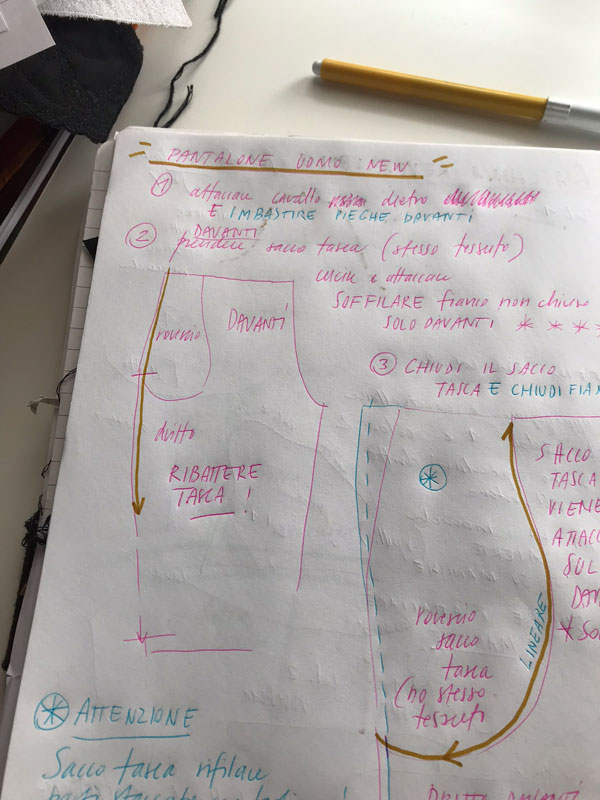 PANTALONE UOMO NEW
① attaccare cavallo dietro
E IMBASTIRE PIEGHE DAVANTI
DAVANTI
② prendere sacco tasca (stesso tessuto)
cucire e attaccare
SOFFILARE fianco non chiuso
SOLO DAVANTI * * * *
rovescio
DAVANTI
③ CHIUDI IL SACCO
TASCA E CHIUDI FIAN
dritto
RIBATTERE
TASCA !
SACCO
TASCA
VIENE
ATTACC
SUL
DAV
* SO
LINEARE
rovescio
sacco
tasca
(no stesso
tessuto
ATTENZIONE
Sacco tasca rifilare
DRITTO DAVANTI